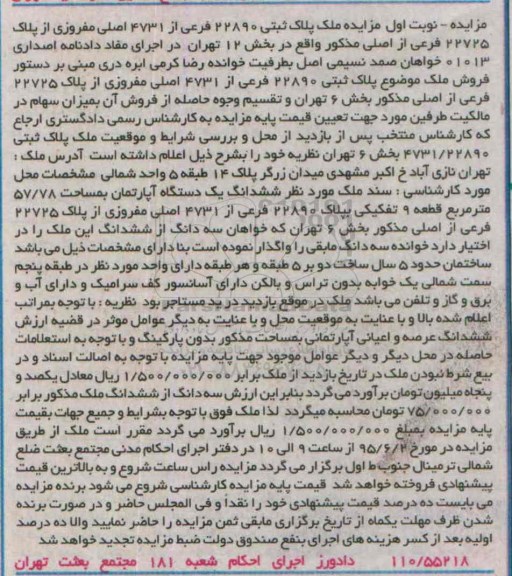 مزایده - نوبت اول مزایده ملک پلاک ثبتی ۲۲۸۹۰ فرعی از ۴۷۳۱ اصلی مفروزی از پلاک
۲۲۷۲۵ فرعی از اصلی مذکور واقع در بخش ۱۲ تهران در اجرای مفاد دادنامه اصداری
۰۱۰۱۳ خواهان صمد نسیمی اصل بطرفیت خوانده رضا کرمی ابره دری مبنی بر دستور
فروش ملک موضوع پلاک ثبتی ۲۲۸۹۰ فرعی از ۴۷۳۱ اصلی مفروزی از پلاک ۲۲۷۲۵
فرعی از اصلی مذکور بخش ۶ تهران و تقسیم وجوه حاصله از فروش آن بمیزان سهام در
مالکیت طرفین مورد جهت تعیین قیمت پایه مزایده به کارشناس رسمی دادگستری ارجاع
که کارشناس منتخب پس از بازدید از محل و بررسی شرایط و موقعیت ملک پلاک ثبتی
۴۷۳۱/۲۲۸۹۰ بخش ۶ تهران نظریه خود را بشرح ذیل اعلام داشته است آدرس ملک :
تهران نازی آباد خ اکبر مشهدی میدان زرگر پلاک ۱۴ طبقه ۵ واحد شمالی مشخصات محل
مورد کارشناسی : سند ملک مورد نظر ششدانگ یک دستگاه آپارتمان بمساحت ۵۷/۷۸
مترمربع قطعه ۹ تفکیکی پلاک ۲۲۸۹۰ فرعی از ۴۷۳۱ اصلی مفروزی از پلاک ۲۲۷۲۵
فرعی از اصلی مذکور بخش ۶ تهران که خواهان سه دانگ از ششدانگ این ملک را در
اختیار دارد خوانده سه دانگ مابقی را واگذار نموده است بنا دارای مشخصات ذیل می باشد
ساختمان حدود ۵ سال ساخت دو بر ۵ طبقه و هر طبقه دارای واحد مورد نظر در طبقه پنجم
سمت شمالی یک خوابه بدون تراس و بالکن دارای آسانسور کف سرامیک و دارای آب و
برق و گاز و تلفن می باشد ملک در موقع بازدید در ید مستاجر بود نظریه : با توجه بمراتب
اعلام شده بالا و با عنایت به موقعیت محل و با عنایت به دیگر عوامل موثر در قضیه ارزش
ششدانگ عرصه و اعیانی آپارتمانی بمساحت مذکور بدون پارکینگ و با توجه به استعلامات
حاصله در محل دیگر و دیگر عوامل موجود جهت پایه مزایده با توجه به اصالت اسناد و در
بیع شرط نبودن ملک در تاریخ بازدید از ملک برابر ۱/۵۰۰/۰۰۰/۰۰۰ ریال معادل یکصد و
پنجاه میلیون تومان برآورد می گردد بنابر این ارزش سه دانگ از ششدانگ ملک مذکور برابر
۷۵/۰۰۰/۰۰۰ تومان محاسبه میگردد لذا ملک فوق با توجه بشرایط و جمیع جهات بقیمت
پایه مزایده بمبلغ ۱/۵۰۰/۰۰۰/۰۰۰ ریال برآورد می گردد مقرر است ملک از طریق
مزایده در مورخ ۹۵/۶/۲ از ساعت ۹ الی ۱۰ در دفتر اجرای احکام مدنی مجتمع بعثت ضلع
شمالی ترمینال جنوب ط اول برگزار می گردد مزایده راس ساعت شروع و به بالاترین قیمت
پیشنهادی فروخته خواهد شد قیمت پایه مزایده کارشناسی شروع می شود برنده مزایده
می بایست ده درصد قیمت پیشنهادی خود را نقداً و فی المجلس حاضر و در صورت برنده
شدن ظرف مهلت یکماه از تاریخ برگزاری مابقی ثمن مزایده را حاضر نمایید والا ده درصد
اولیه بعد از کسر هزینه های اجرای بنفع صندوق دولت ضبط مزایده تجدید خواهد شد
۱۱۰/۵۵۲۱۸ دادورز اجرای احکام شعبه ۱۸۱ مجتمع بعثت تهران